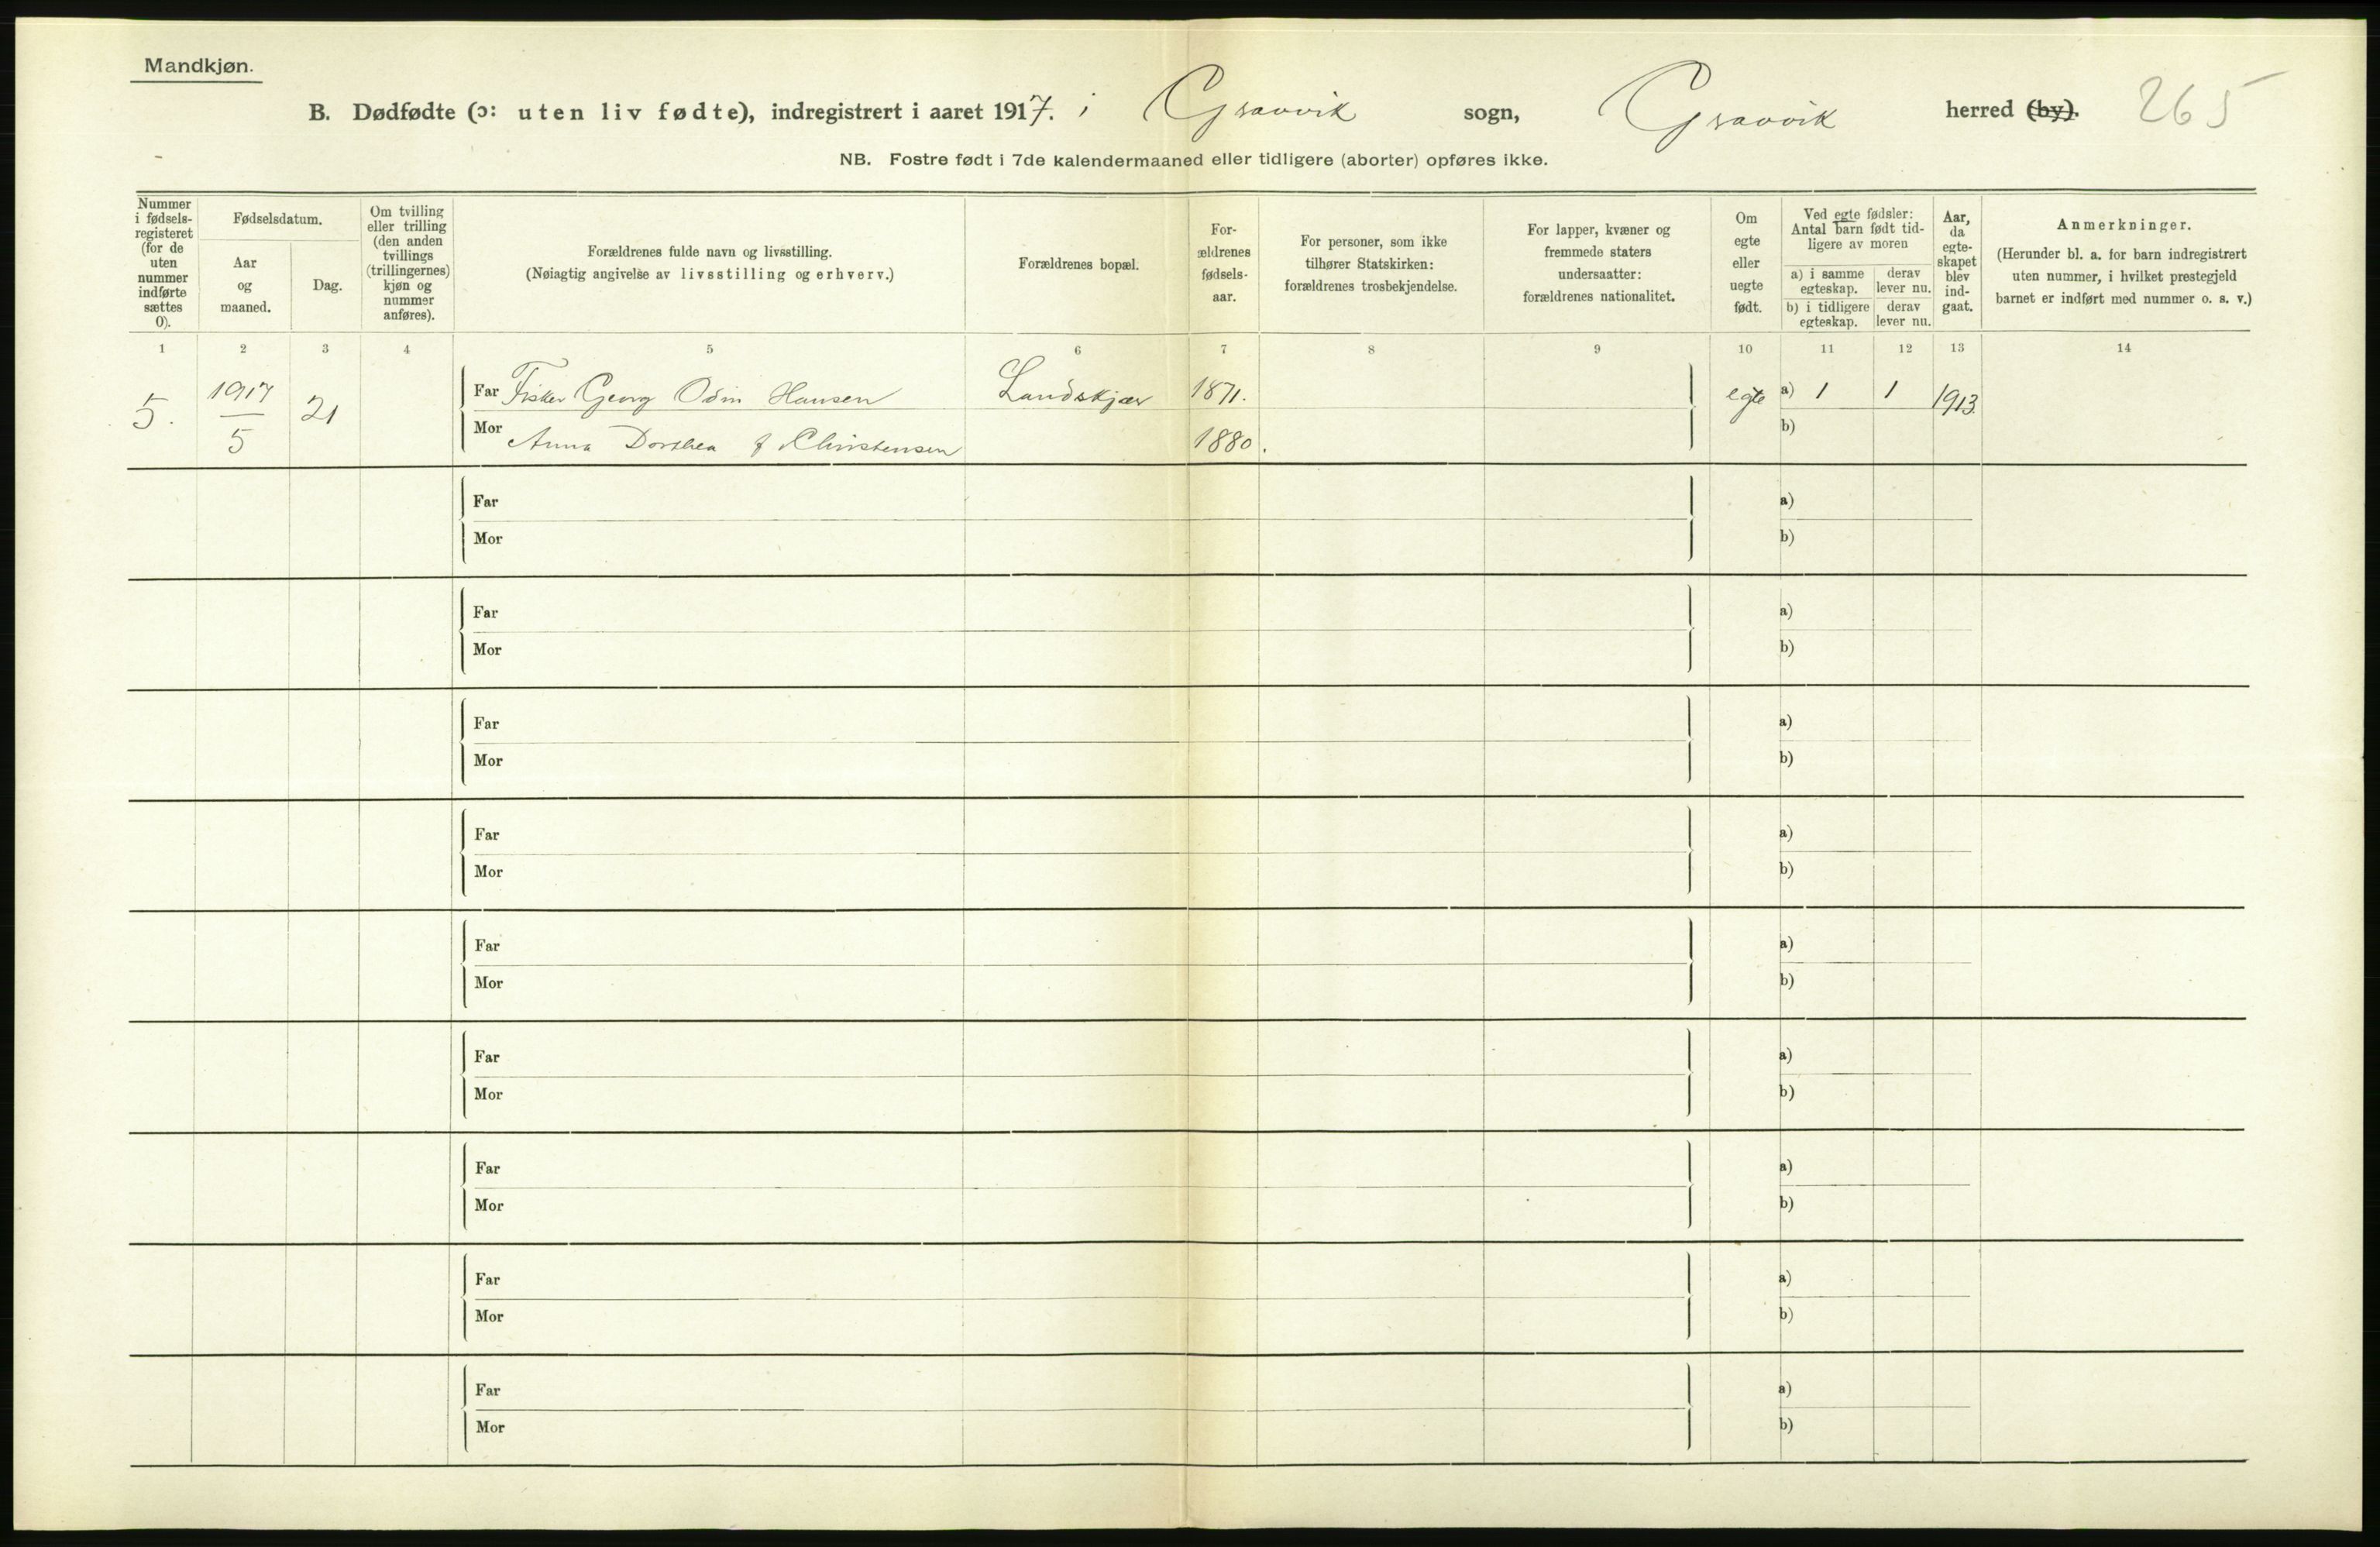 Mandkjøn.
B. Dødfødte (ɔ: uten liv fødte), indregistrert i aaret 1917. i Gravvik sogn, Gravvik herred (by). 265
NB. Fostre født i 7de kalendermaaned eller tidligere (aborter) opføres ikke.
Nummer i fødsels-registeret (for de uten nummer indførte sættes 0).
Fødselsdatum.
Aar og maaned.
Dag.
Om tvilling eller trilling (den anden tvillings (trillingernes) kjøn og nummer anføres).
Forældrenes fulde navn og livsstilling.
(Nøiagtig angivelse av livsstilling og erhverv.)
Forældrenes bopæl.
For-ældrenes fødsels-aar.
For personer, som ikke tilhører Statskirken: forældrenes trosbekjendelse.
For lapper, kvæner og fremmede staters undersaatter: forældrenes nationalitet.
Om egte eller uegte født.
Ved egte fødsler: Antal barn født tid-ligere av moren
a) i samme egteskap.
derav lever nu.
b) i tidligere egteskap.
derav lever nu.
Aar, da egte-skapet blev ind-gaat.
Anmerkninger.
(Herunder bl. a. for barn indregistrert uten nummer, i hvilket prestegjeld barnet er indført med nummer o. s. v.)
1 2 3 4 5 6 7 8 9 10 11 12 13 14
5. 1917 5 21 Far Fisker Georg Odin Hansen Landskjær 1871. egte a) 1 1 1913.
Mor Anna Dorthea f Christensen 1880. b)
Far a)
Mor b)
Far a)
Mor b)
Far a)
Mor b)
Far a)
Mor b)
Far a)
Mor b)
Far a)
Mor b)
Far a)
Mor b)
Far a)
Mor b)
Far a)
Mor b)